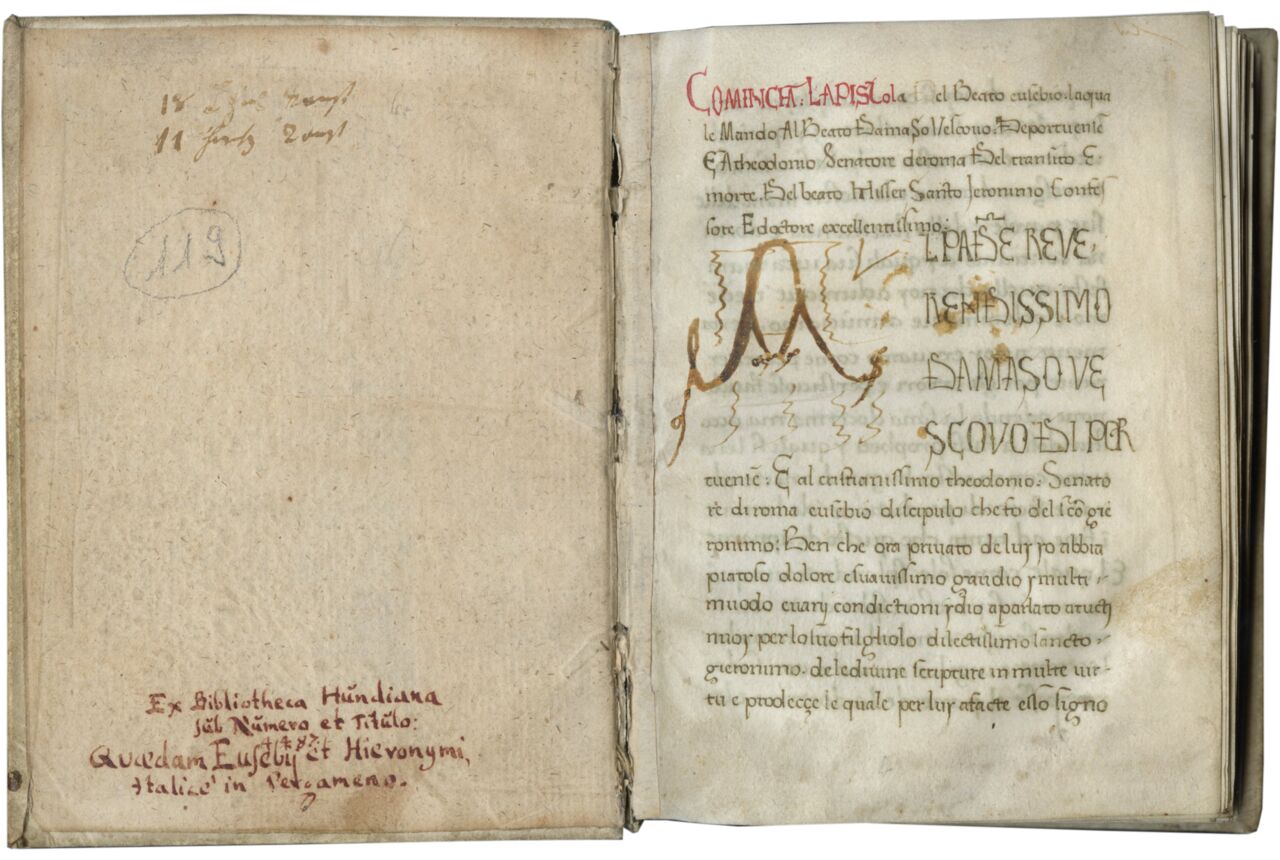 119
Ex Bibliotheca Hundiana
sub Numero et Titulo:
487.
Quædam Eusebij et Hieronymi,
Italice in Pergameno.
COMINCIA. LAPISTola del Beato eusebio. laqua
le Mando Al Beato Damaso Vescouo. Deportuenẽ
E Atheodonio Senatore deroma Del transito E
morte. Del beato Misser Santo Jeronimo Confes
sore E doctore excellentissimo:
AL PADRE REVE,
RENDISSIMO
DAMASO VE
SCOVO DI POR
tuenẽ: E al cristianissimo theodonio: Senato
re di roma eusebio discipulo che fo del sc̃o gie
ronimo: Ben che ora priuato de luy yo abbia
piatoso dolore e suauissimo gaudio y multi
muodo e uarij condictioni ydio a parlato a tucti
nuoy per lo suo filgliolo dilectissimo sancto
gieronimo. dele diuine scripture in multe uir
tu e prodecçe le quale per luy a facte esso signo